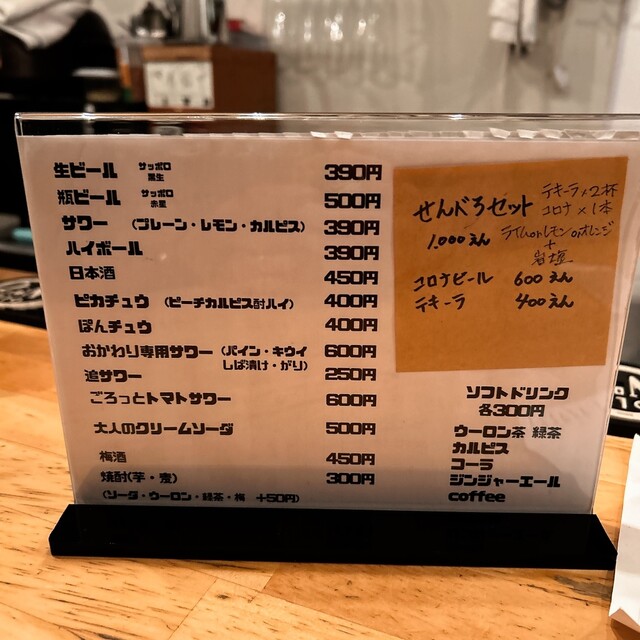 生ビール サッポロ 黒生 390円
瓶ビール サッポロ 赤星 500円
サワー (プレーン・レモン・カルピス) 390円
ハイボール 390円
日本酒 450円
ピカチュウ (ピーチカルピス酎ハイ) 400円
ぽんチュウ 400円
おかわり専用サワー (パイン・キウイ 600円
しば漬け・がり)
追サワー 250円
ごろっとトマトサワー 600円
大人のクリームソーダ 500円
梅酒 450円
焼酎(芋・麦) 300円
(ソーダ・ウーロン・緑茶・梅 +50円)
せんべろセット テキーラ×2杯
コロナ×1本
1,000えん ライムorレモンorオレンジ
+
岩塩
コロナビール 600えん
テキーラ 400えん
ソフトドリンク
各300円
ウーロン茶 緑茶
カルピス
コーラ
ジンジャーエール
coffee